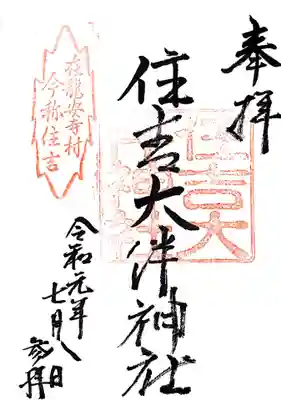 奉拝
住吉大伴神社
住吉大
在龍安寺村
今称住吉
令和元年
七月八日
参拝